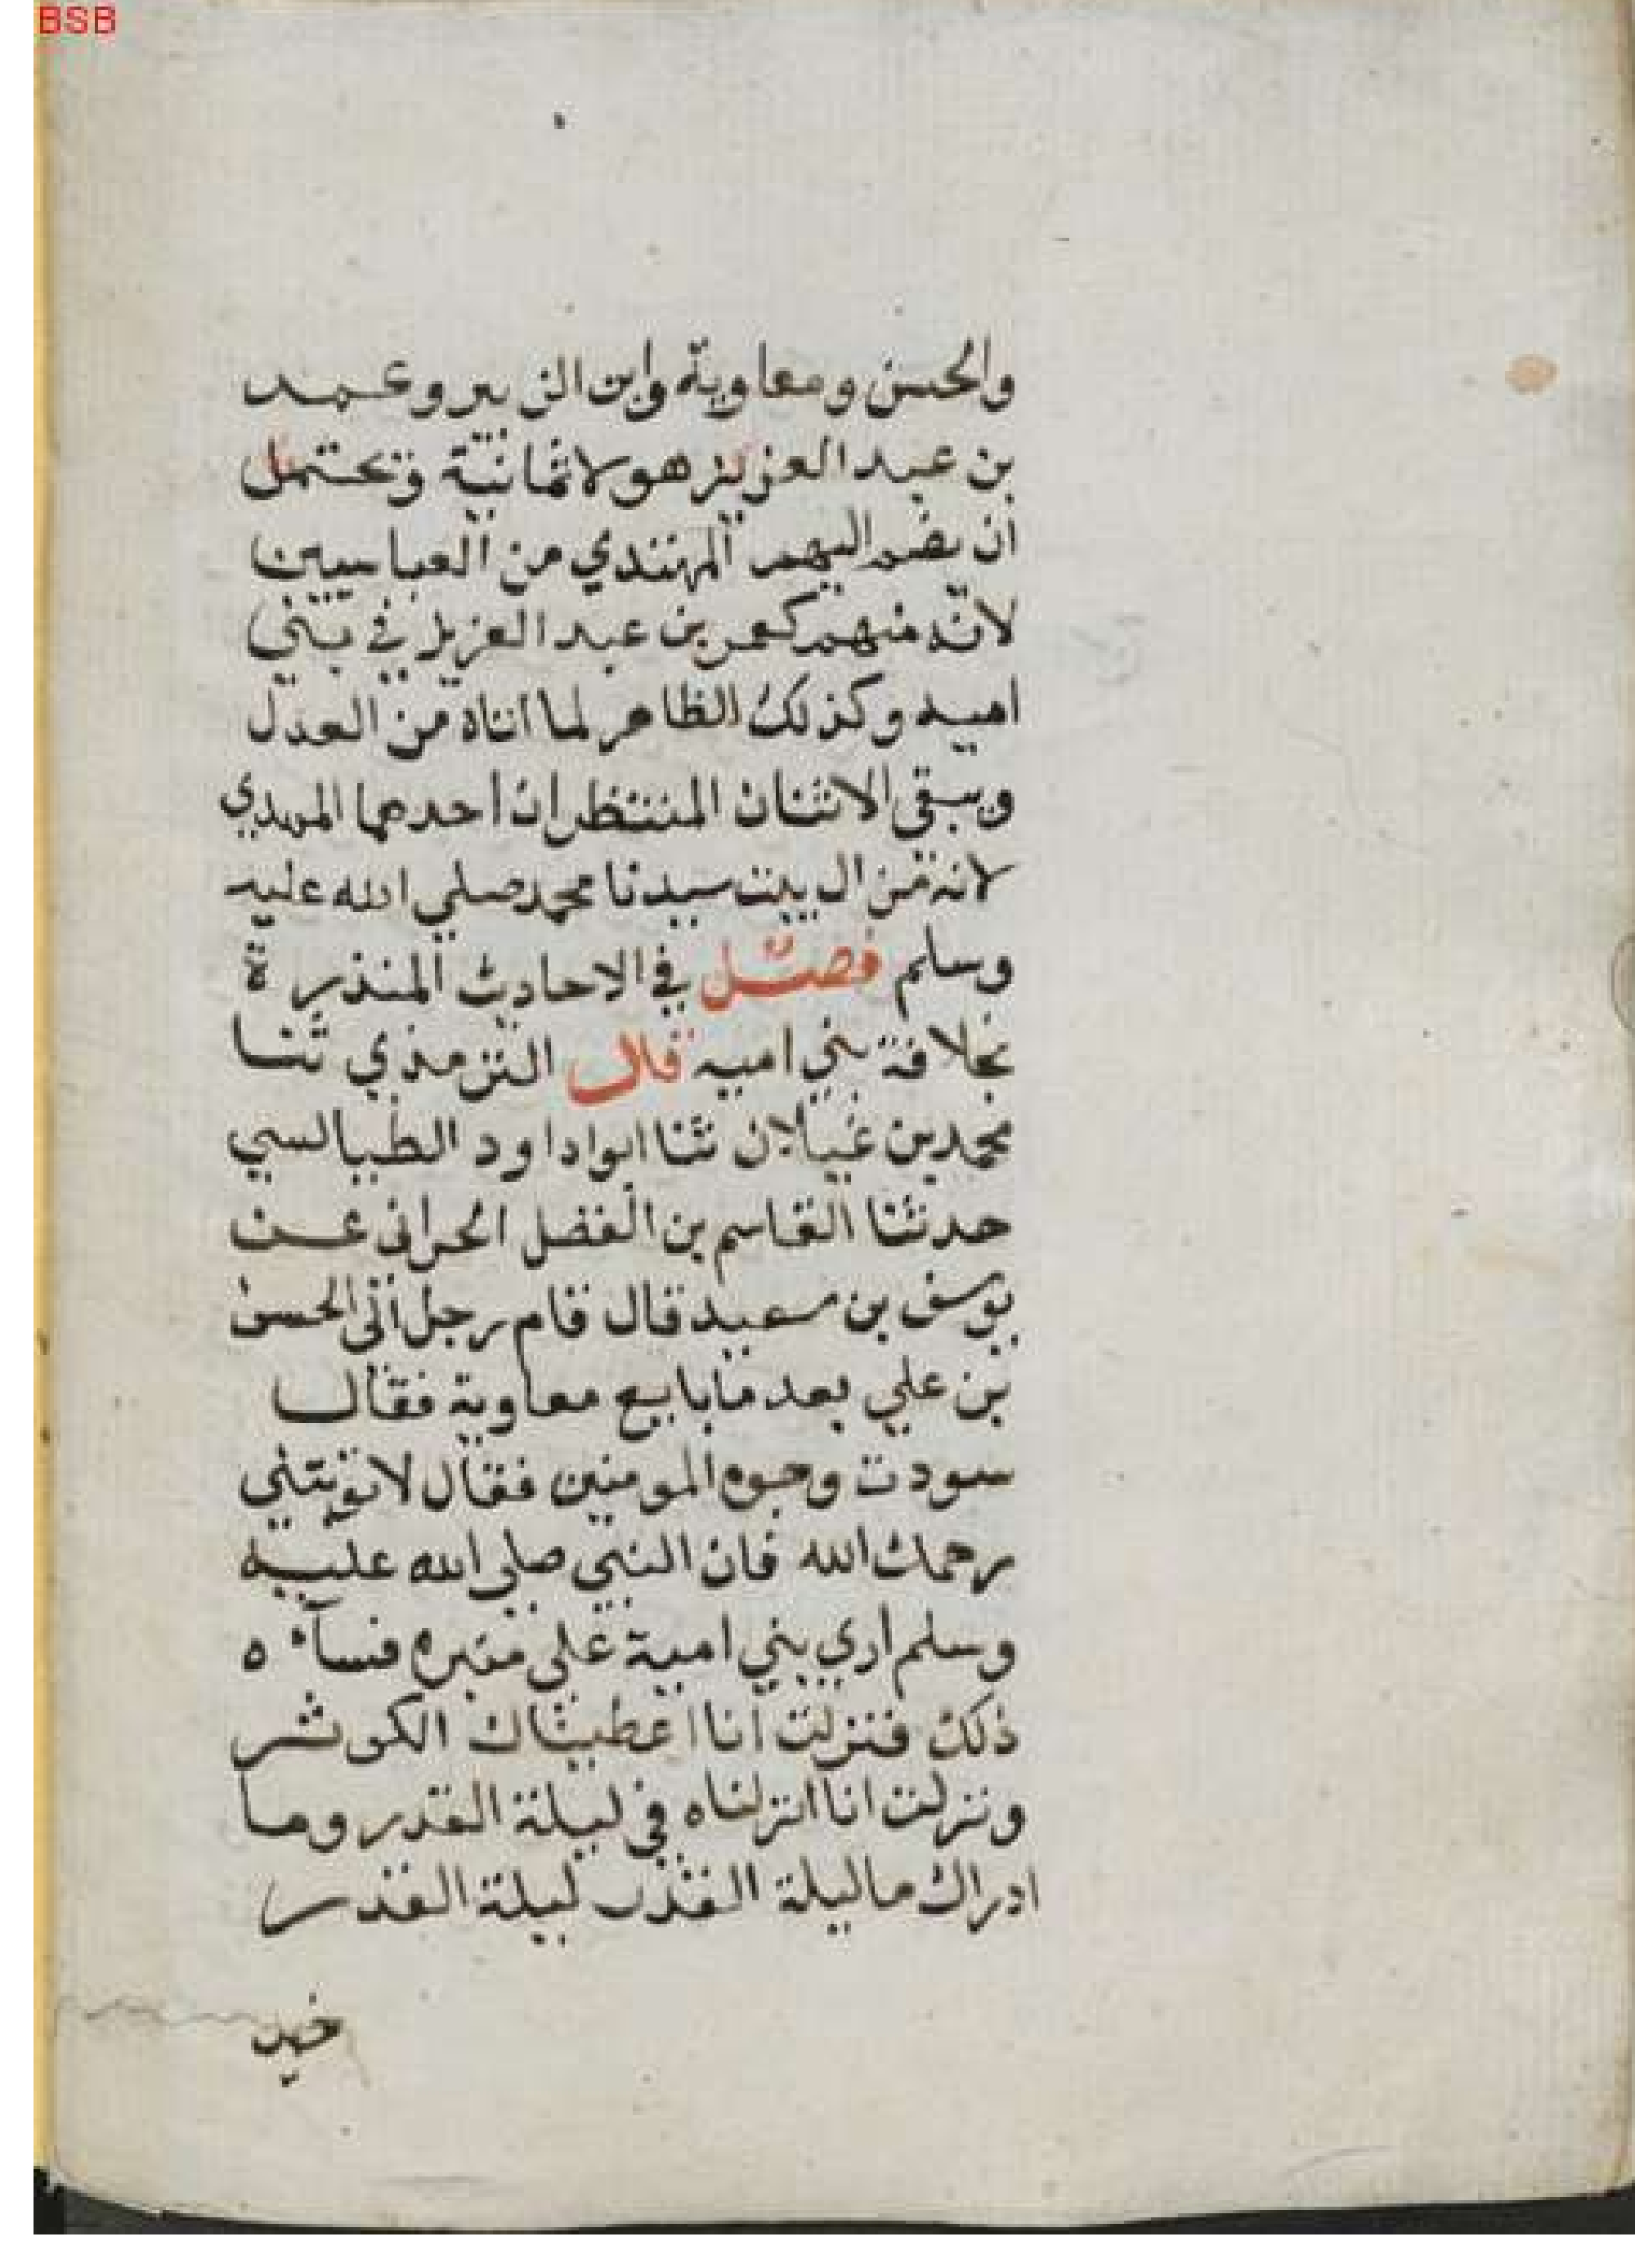 BSB
والحسن ومعاوية وابن الزبير وعمر
بن عبد العزيز هولا ثمانية وتحتمل
ان يضم اليهم المهتدي من العباسيين
لانه منهم كعمر بن عبد العزيز في بني
اميه وكذلك الظاهر لما اتاه من العدل
ويبقى الاثنان المنتظران احدهما المهدي
لانه من ال بيت سيدنا محمد صلي الله عليه
وسلم فصل في الاحاديث المنذرة
بخلافة بني اميه قال الترمذي ثنا
محمد بن غيلان ثنا ابوا داود الطيالسي
حدثنا القاسم بن الفضل الحراني عن
يوسف بن سعيد قال قام رجل الى الحسن
بن علي بعد ما بايع معاوية فقال
سودت وجوه المومنين فقال لا تونبني
رحمك الله فان النبي صلى الله عليه
وسلم اري بني امية على منبره فساءه
ذلك فنزلت انا اعطيناك الكوثر
ونزلت انا انزلناه في ليلة القدر وما
ادراك ما ليلة القدر ليلة القدر
خير